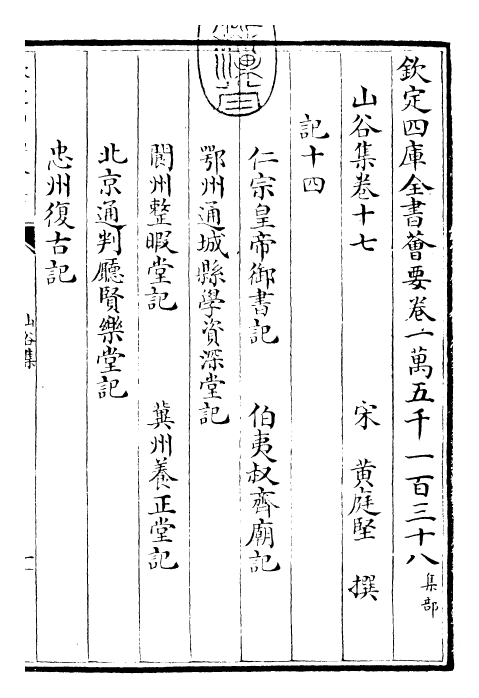 欽定四庫全書薈要卷一萬五千一百三十八 集部
山谷集卷十七 宋 黄庭堅 撰
記十四
仁宗皇帝御書記 伯夷叔齊廟記
鄂州通城縣學資深堂記
閬州整暇堂記 冀州養正堂記
北京通判廳賢樂堂記
忠州復古記
山谷集